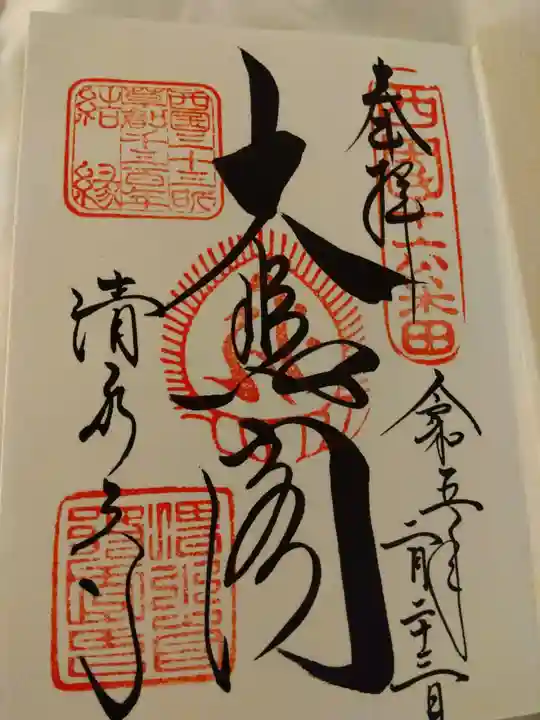 奉拝
西国十六番
令和五年二月二十三日
大悲閣
清水寺
西國三十三所
草創千三百年
結縁